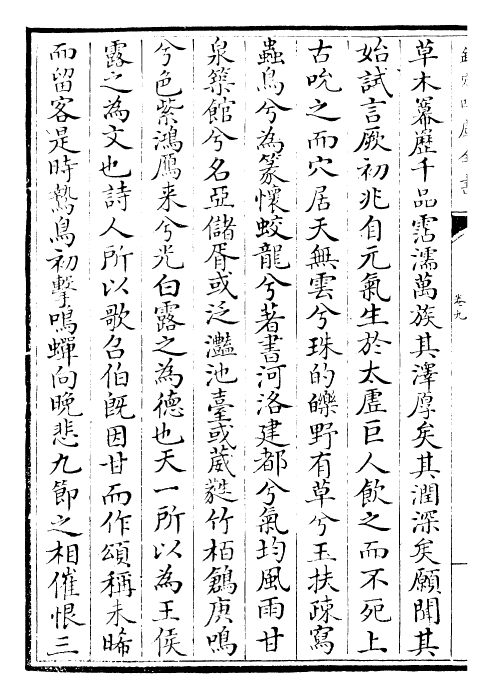 欽定四庫全書
卷九
草木冪歷千品霑濡萬族其澤厚矣其潤深矣願聞其
始試言厥初兆自元氣生於太虛巨人飲之而不死上
古吮之而穴居天無雲兮珠的皪野有草兮玉扶疎寫
蟲鳥兮為篆懷蛟龍兮著書河洛建都兮氣均風雨甘
泉築館兮名亞儲胥或泛灩池臺或葳蕤竹栢鶬庚鳴
兮色紫鴻鴈来兮光白露之為德也天一所以為王侯
露之為文也詩人所以歌召伯既因甘而作頌稱未晞
而留客是時鷙鳥初擊鳴蟬向晚悲九節之相催恨三